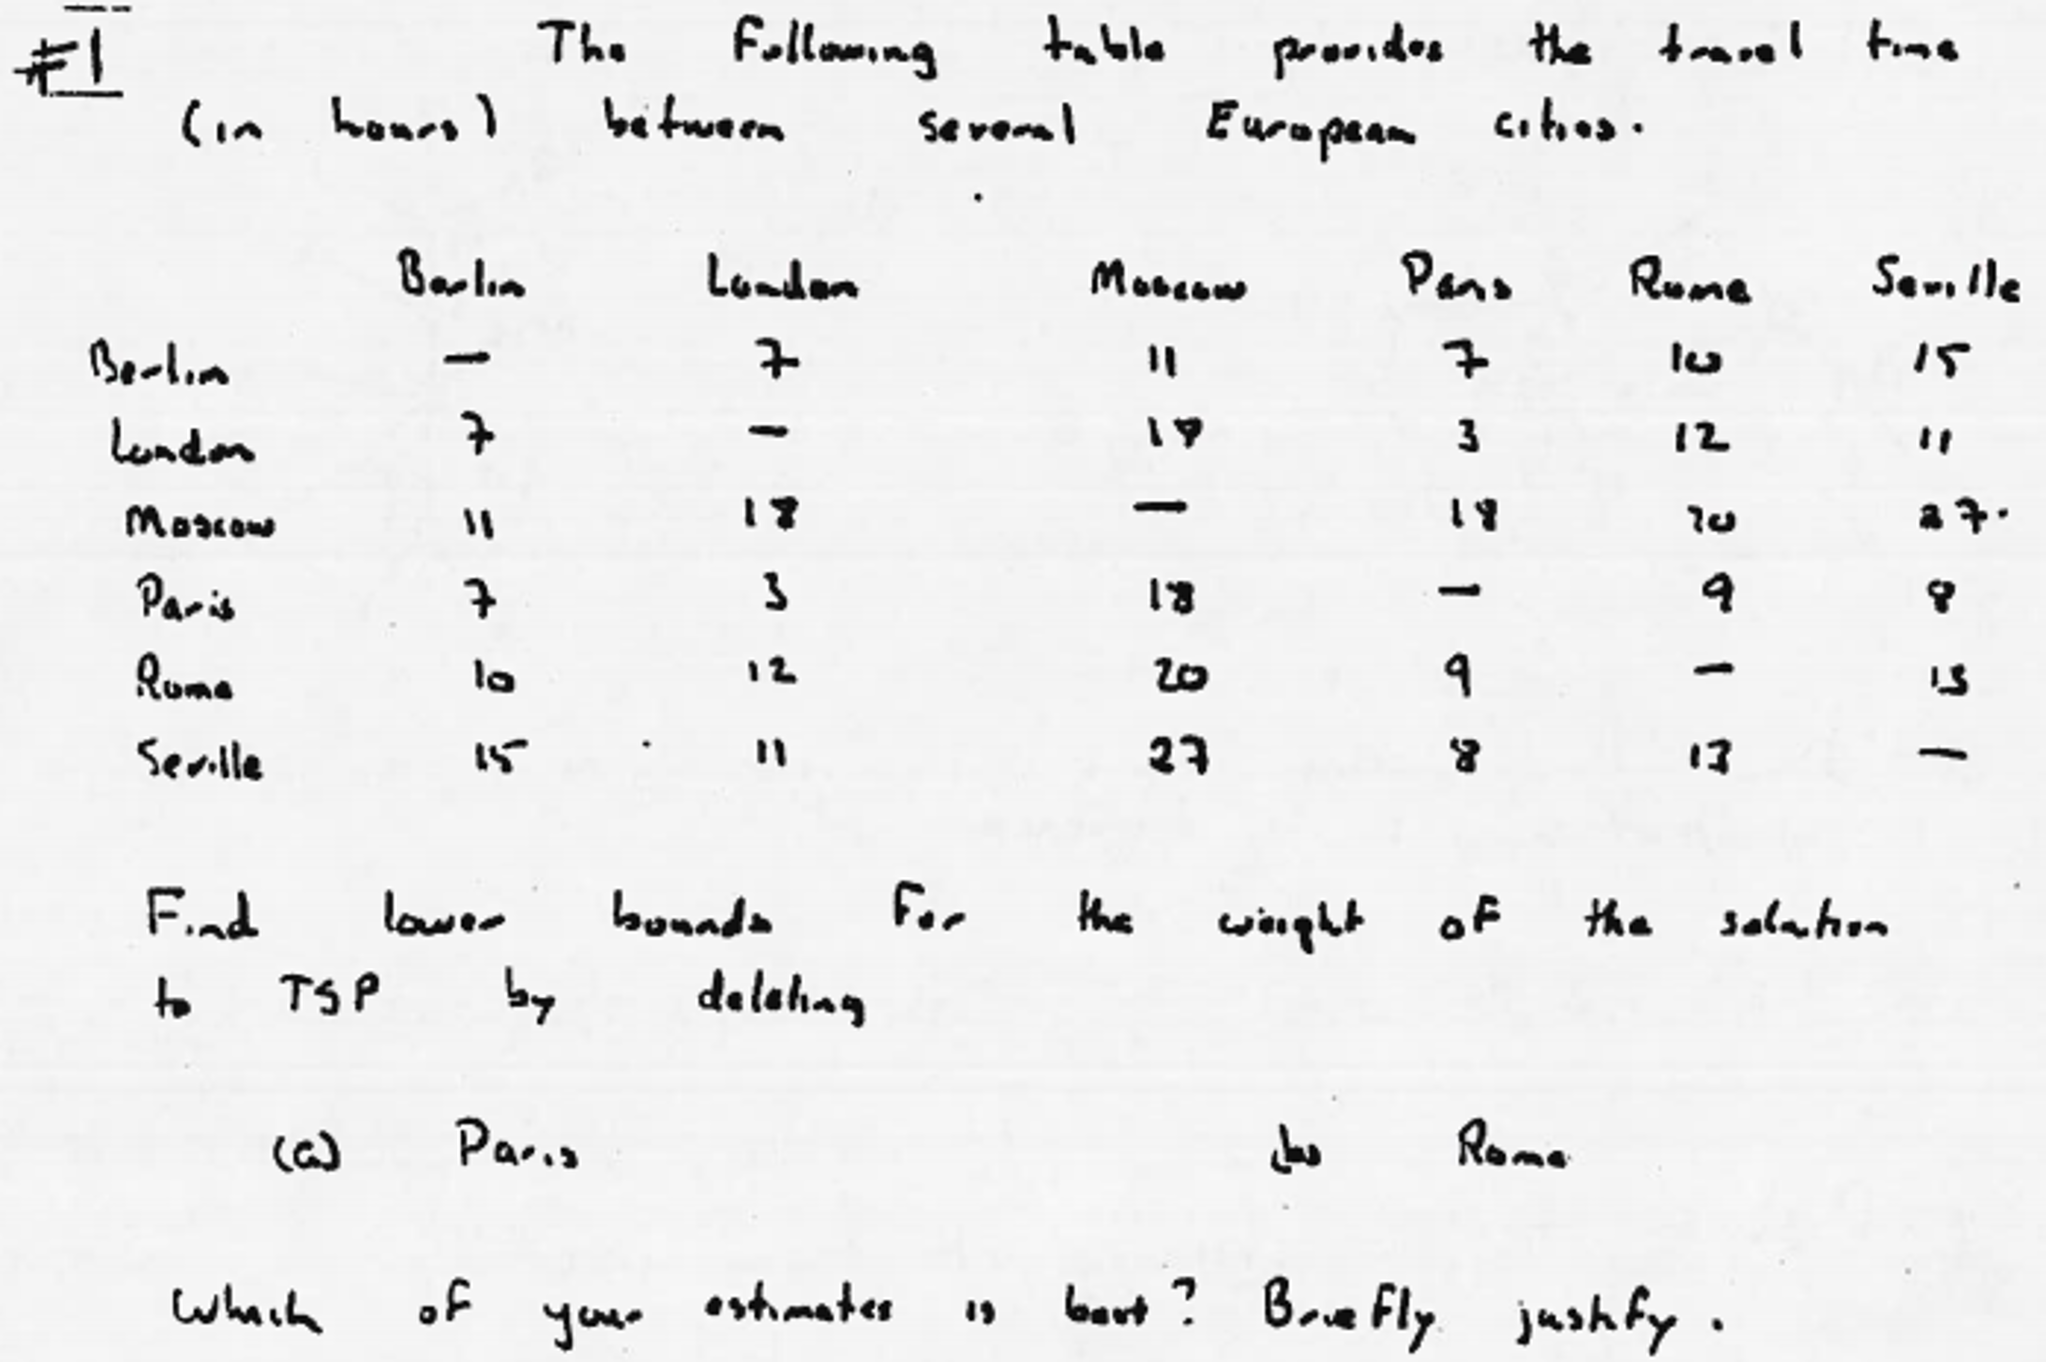 #1 The following table provides the travel time
(in hours) between several European cities.
Berlin London Moscow Paris Rome Seville
Berlin — 7 11 7 10 15
London 7 — 18 3 12 11
Moscow 11 18 — 18 20 27
Paris 7 3 18 — 9 8
Rome 10 12 20 9 — 13
Seville 15 11 27 8 13 —
Find lower bounds for the weight of the solution
to TSP by deleting
(a) Paris (b) Rome
Which of your estimates is best? Briefly justify.